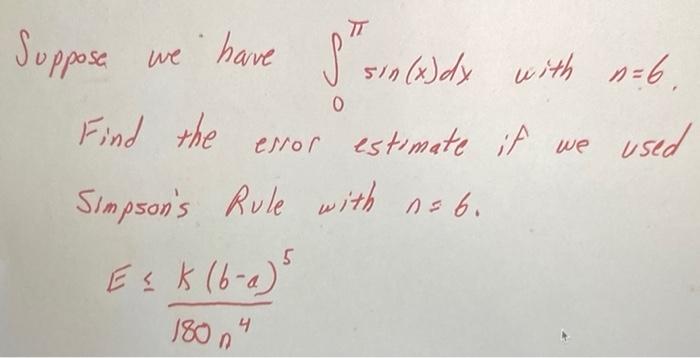 Suppose we have ∫₀^π sin(x)dx with n=6.
Find the error estimate if we used
Simpson's Rule with n=6.
E ≤ K(b-a)⁵ / 180n⁴